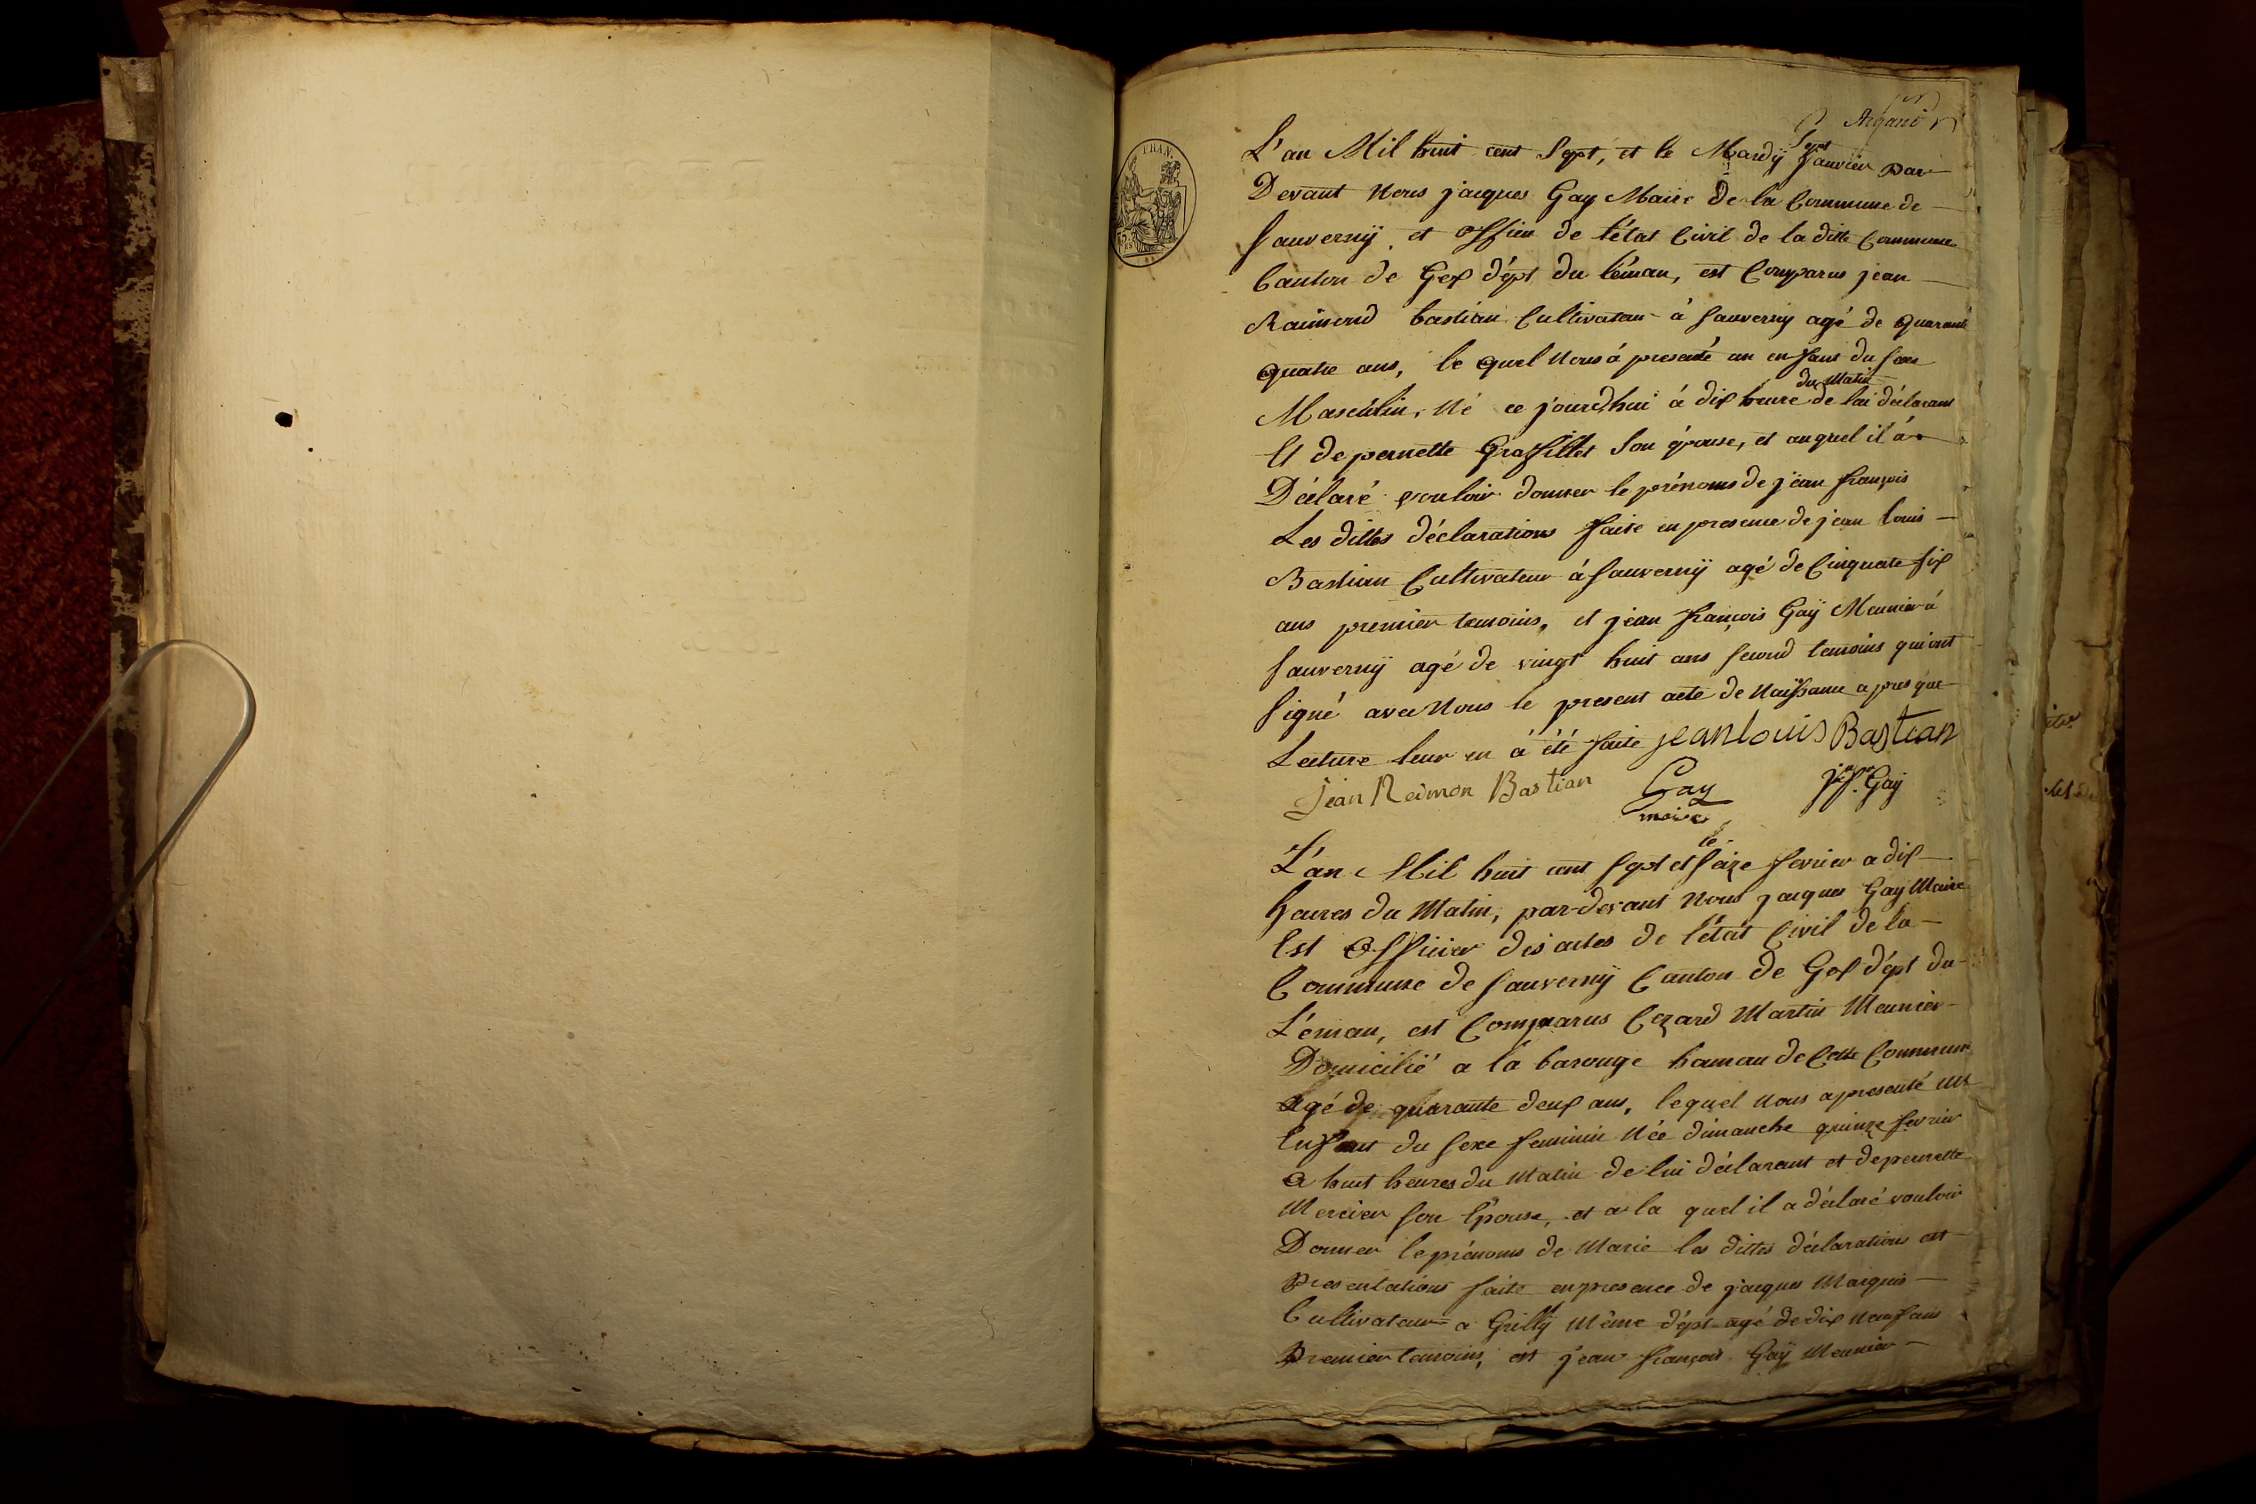 Argand
L'an Mil huit cent Sept, et le Mardÿ Sept Janvier par
Devant Nous jacques Gay Maire De la Commune de
Sauvernÿ, et officier de l'état Civil de la ditte Commune
Canton de Gex dépt du léman, est Comparus jean
Raimond bastian Cultivateur à Sauverny agé de quarante
quatre ans, le quel Nous á presenté un enfant du sexe
Masculin, Né ce jourd'hui à dix heure du Matin de lui déclarant
Et de pernette Graffillet Son épouse, et auquel il á
Déclaré vouloir donner le prénoms de jean françois
Les dittes déclarations faite en presence de jean louis
Bastian Cultivateur à Sauvernÿ agé de Cinquate six
ans premier temoins, et jean françois Gaÿ Meunier à
Sauvernÿ agé de vingt huit ans second temoins qui ont
Signé avec Nous le present acte de Naissance apres que
Lecture leur en á été faite jean louis Bastian
Jean Reimon Bastian Gay maire jn fs Gaÿ
L'an Mil huit cent sept et le seize fevrier a dix
heures du Matin, par-devant Nous jacques Gay Maire
Est Officier des actes de l'état Civil de la
Commune de Sauvernÿ Canton de Gex dépt du
Léman, est Comparus Cezard Martin Meunier
Domicilié a la barouge hamau de Cette Commune
Agé de quarante deux ans, lequel nous a presenté un
Enfant du sexe feminin Née dimanche quinze fevrier
a huit heures du Matin de lui déclarant et de pernette
Mercier son Epouse, et a la quel il a déclaré vouloir
Donner le prénoms de Marie les dittes déclarations est
Presentations faite en presence de jacques Marquis
Cultivateur a Grilly Même dépt agé de dix neuf ans
Premier temoins, est jean françois Gaÿ Meunier